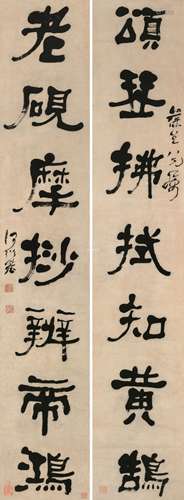 頌琴拂拭知黃鵠
老硯摩挱辨帝鴻
何紹基